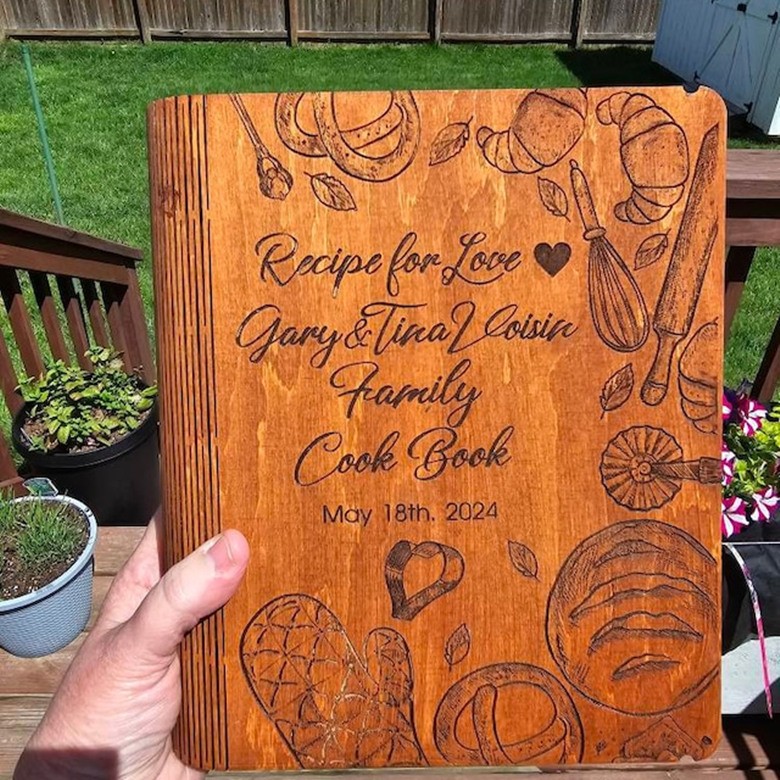 Recipe for Love ♥
Gary & Tina Loisin
Family
Cook Book
May 18th. 2024